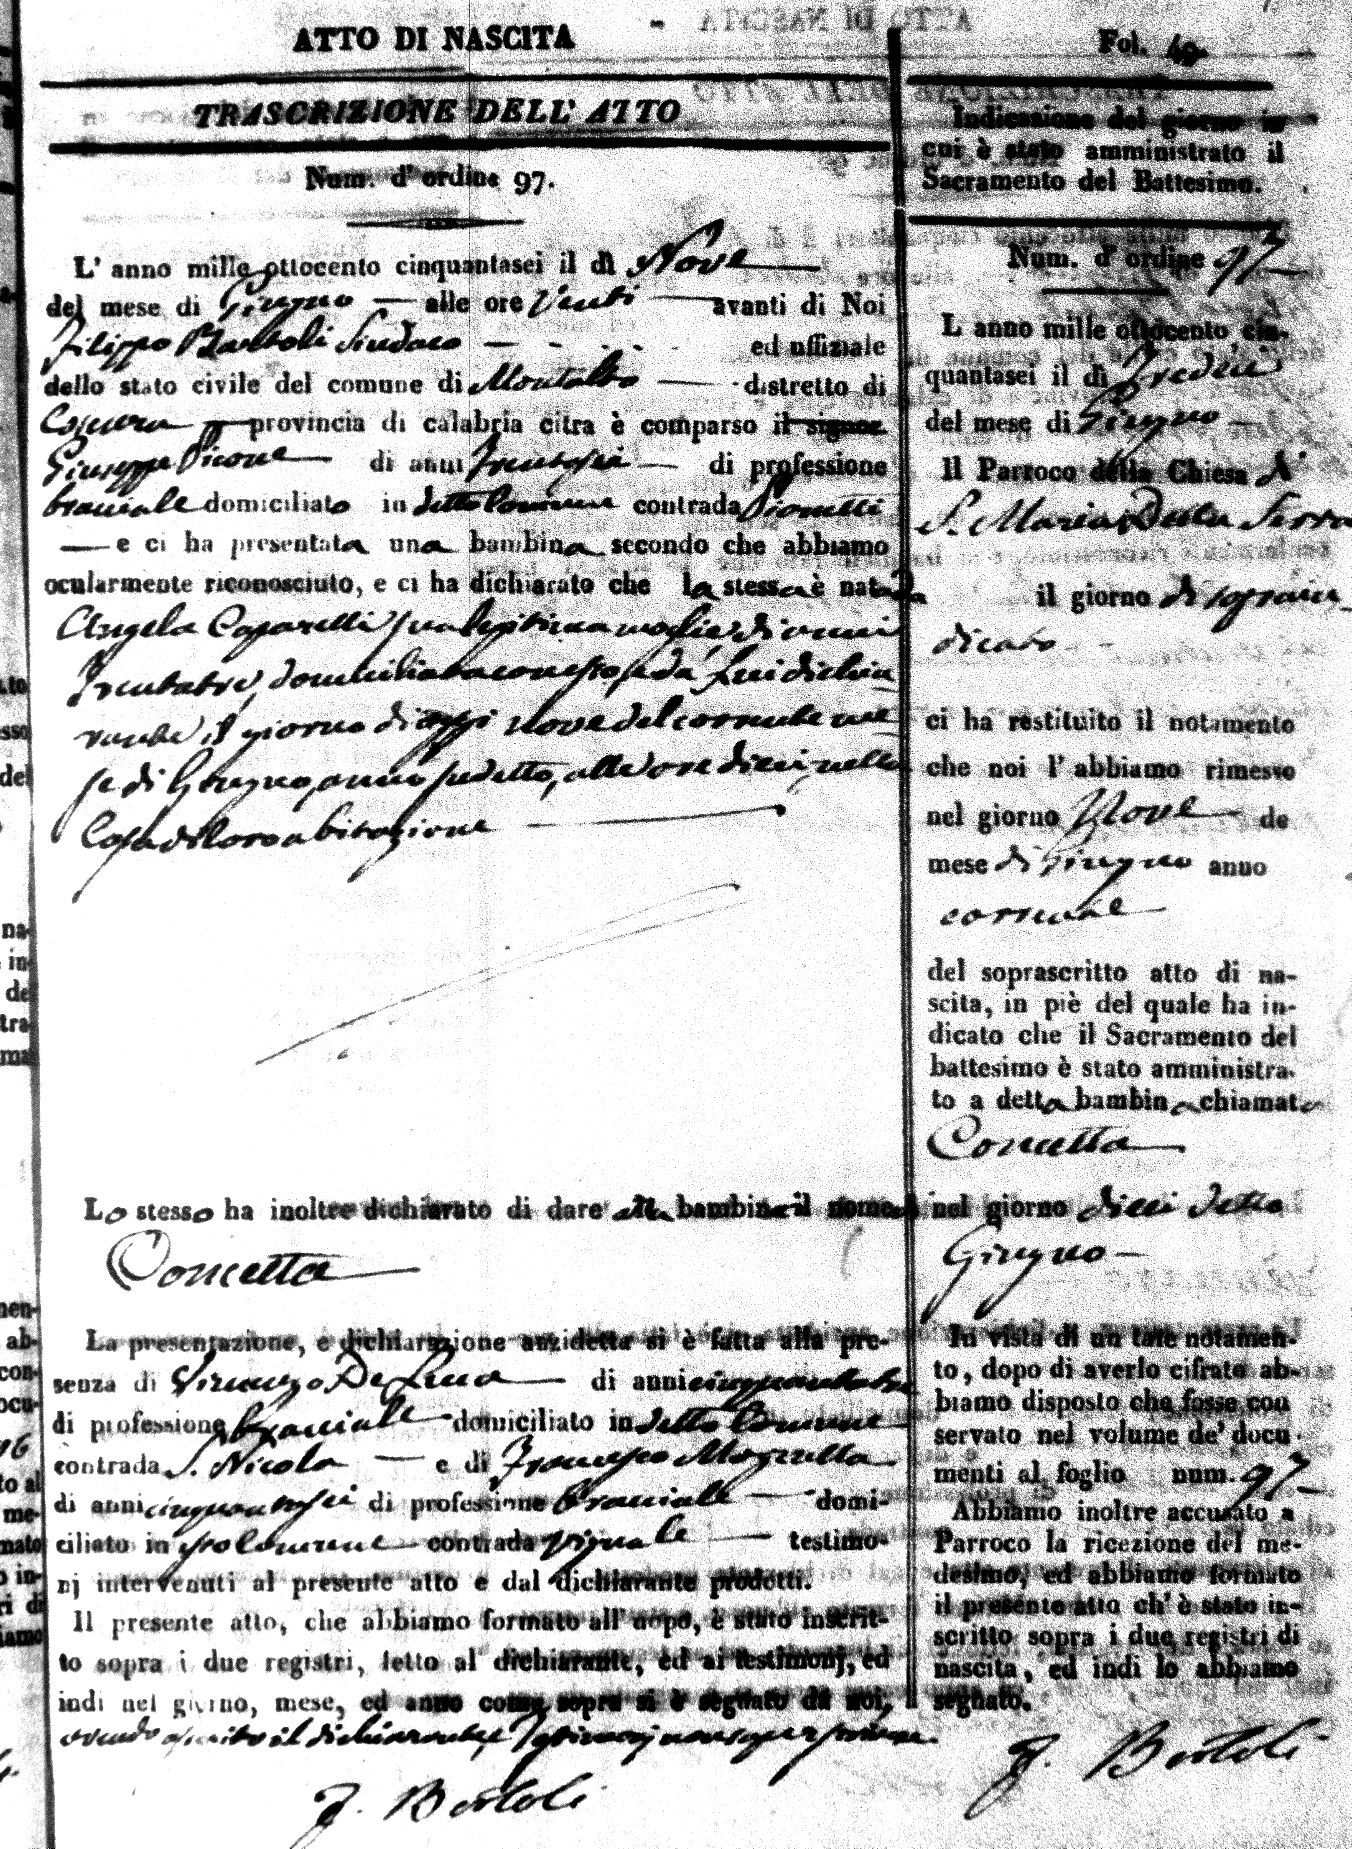 ATTO DI NASCITA
TRASCRIZIONE DELL' ATTO
Num. d' ordine 97.
L' anno mille ottocento cinquantasei il dì Nove
del mese di Giugno alle ore Venti avanti di Noi
Filippo Bartoli Sindaco ed uffiziale
dello stato civile del comune di Montalto distretto di
Cosenza provincia di calabria citra è comparso il signor
Giuseppe Picone di anni trentasei di professione
bracciale domiciliato in detto Comune contrada
e ci ha presentata una bambina secondo che abbiamo
ocularmente riconosciuto, e ci ha dichiarato che la stessa è nata da
Angela Caparelli sua legittima moglie di anni
trentatrè, domiciliata con esso, e da lui dichia
rante, il giorno di oggi nove del corrente me
se di Giugno, anno sudetto, alle ore dieci nella
Casa di loro abitazione
Lo stesso ha inoltre dichiarato di dare alla bambina il nome di
Concetta
La presentazione, e dichiarazione anzidetta si è fatta alla pre-
senza di Vincenzo De Luca di anni cinquantatre
di professione bracciale domiciliato in detto Comune
contrada S. Nicola e di Francesco Mazzulla
di anni cinquantasei di professione bracciale domi-
ciliato in Comune contrada vignale testimo-
nj intervenuti al presente atto e dal dichiarante prodotti.
Il presente atto, che abbiamo formato all' uopo, è stato inscrit-
to sopra i due registri, letto al dichiarante, ed ai testimonj, ed
indi nel giorno, mese, ed anno come sopra si è segnato da noi,
avendo asserito il dichiarante e Testimonj non saper scrivere.
F. Bartoli
Fol. 49.
Indicazione del giorno in
cui è stato amministrato il
Sacramento del Battesimo.
Num. d' ordine 97
L anno mille ottocento cin-
quantasei il dì Tredici
del mese di Giugno
Il Parroco della Chiesa di
S. Maria Della Serra
il giorno di sopra in
dicato
ci ha restituito il notamento
che noi l' abbiamo rimesso
nel giorno Nove de
mese di Giugno anno
corrente
del soprascritto atto di na-
scita, in piè del quale ha in-
dicato che il Sacramento del
battesimo è stato amministra-
to a detta bambina chiamata
Concetta
nel giorno dieci detto
Giugno
In vista di un tale notamen-
to, dopo di averlo cifrato ab-
biamo disposto che fosse con
servato nel volume de' docu-
menti al foglio num. 97
Abbiamo inoltre accusato a
Parroco la ricezione del me-
desimo, ed abbiamo formato
il presente atto ch' è stato in-
scritto sopra i due registri di
nascita, ed indi lo abbiamo
segnato.
F. Bartoli